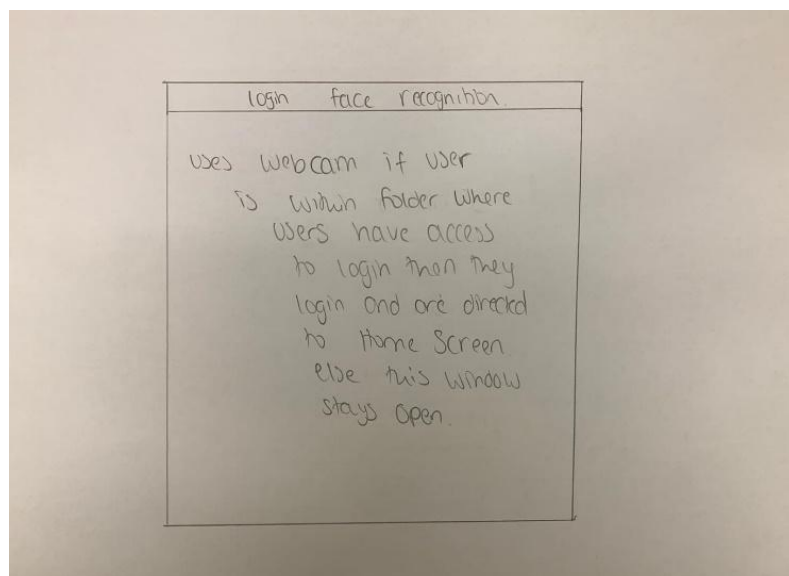 login face recognition.
uses webcam if user
is within folder where
users have access
to login then they
login and are directed
to Home Screen
else this window
stays open.